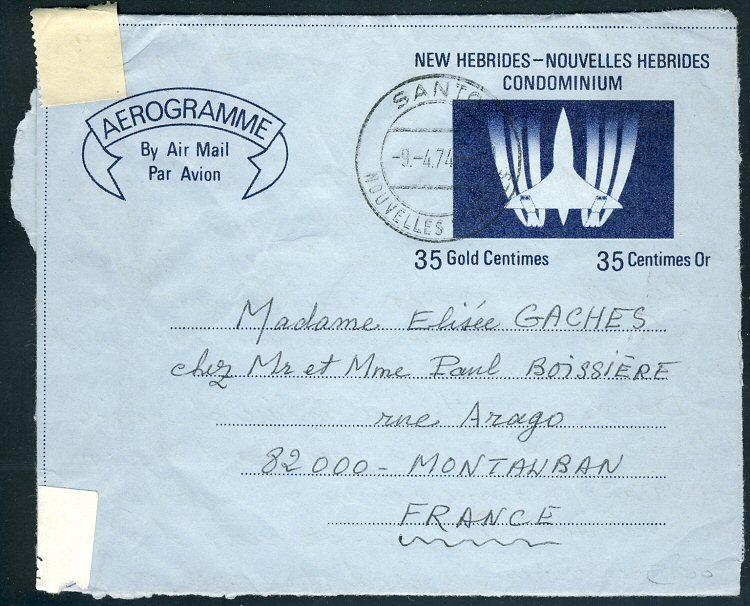 NEW HEBRIDES – NOUVELLES HEBRIDES
CONDOMINIUM
AEROGRAMME
By Air Mail
Par Avion
SANTO
-9.-4.74
NOUVELLES
35 Gold Centimes
35 Centimes Or
Madame Elisée GACHES
chez Mr et Mme Paul BOISSIÈRE
rue Arago
82000 - MONTAUBAN
FRANCE